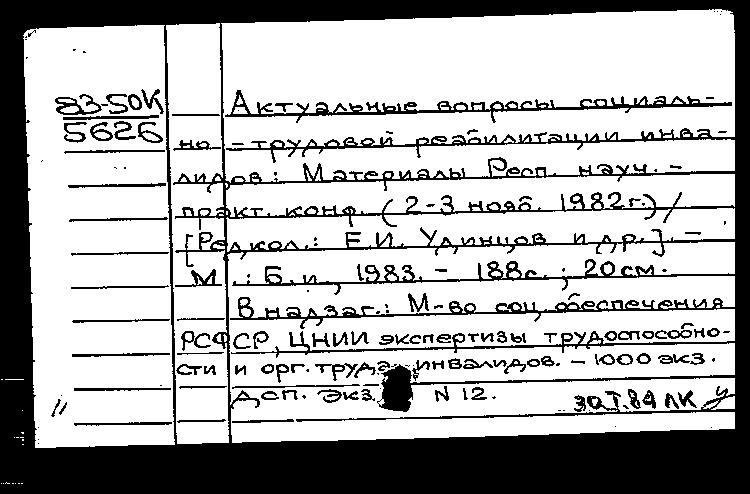 83-50К
5626
Актуальные вопросы социаль-
но-трудовой реабилитации инва-
лидов: Материалы Респ. науч.-
практ. конф. (2-3 нояб. 1982г.) /
[Редкол.: Е.И. Удинцов и др.]. -
М.: Б.и., 1983. - 188с.; 20см.
В надзаг.: М-во соц. обеспечения
РСФСР, ЦНИИ экспертизы трудоспособно-
сти и орг. труда инвалидов. - 1000 экз.
Дсп. Экз. N 12.